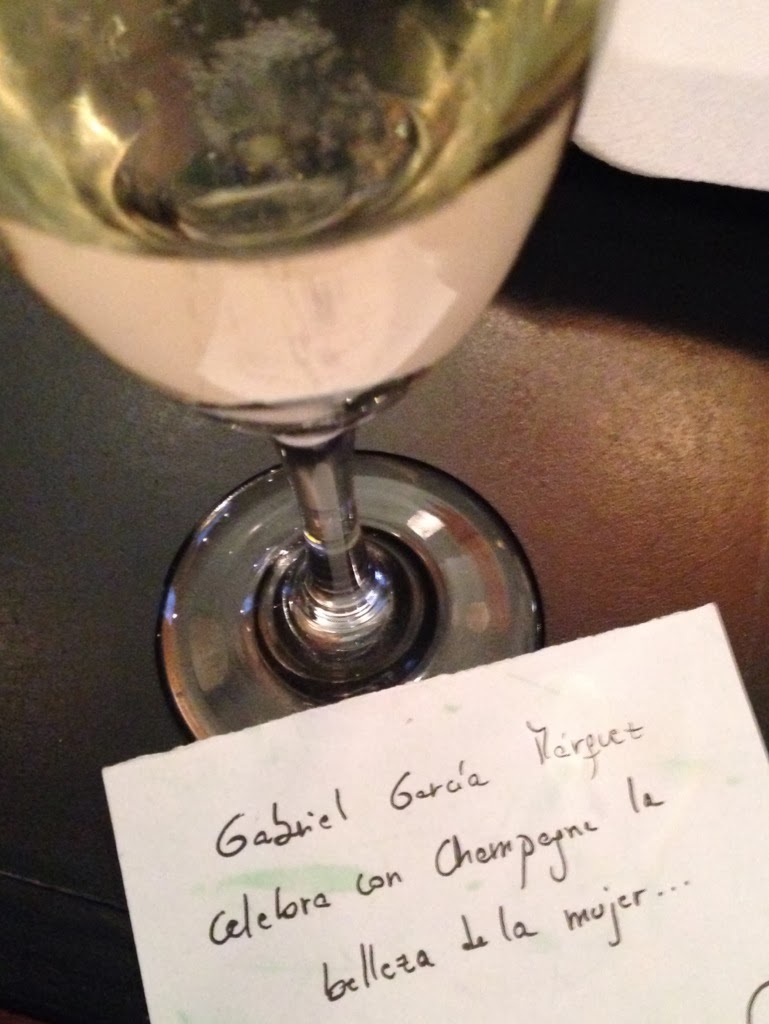 Gabriel García Márquez
celebra con Champagne la
belleza de la mujer...